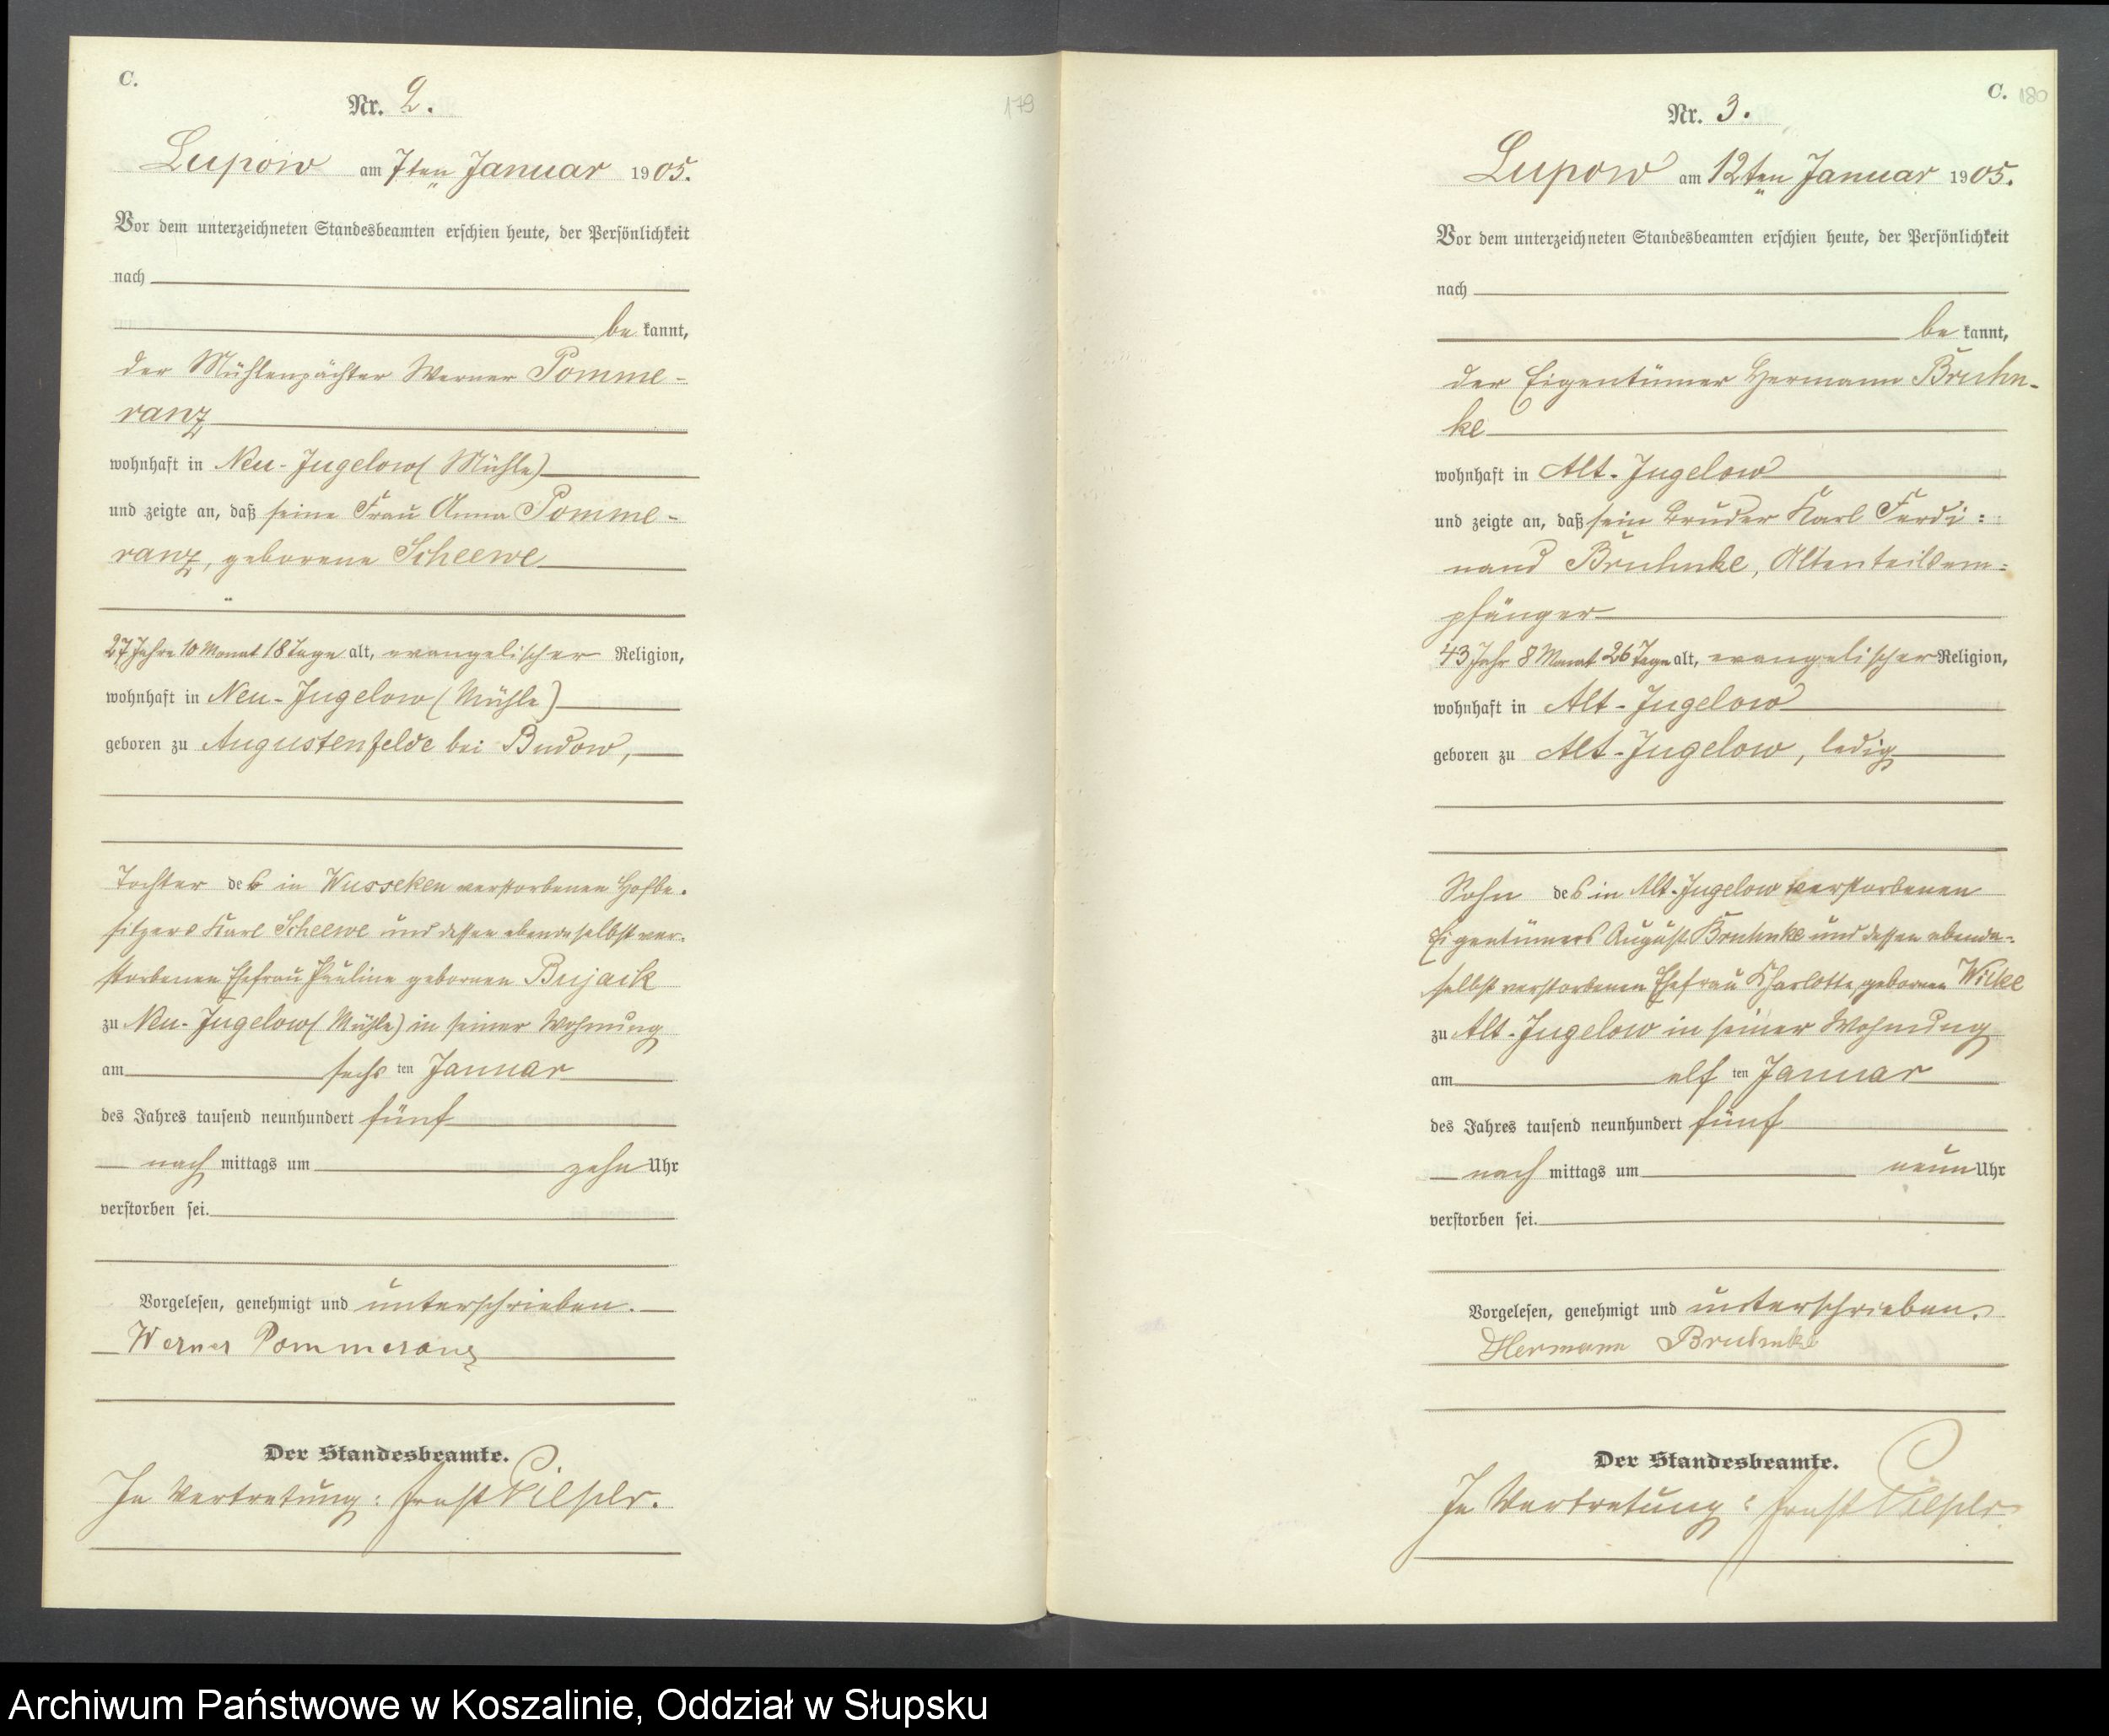 C.
179
Nr. 2.
Lupow am 7ten Januar 1905.
Vor dem unterzeichneten Standesbeamten erschien heute, der Persönlichkeit
nach
be kannt,
der Mühlenpächter Werner Pomme-
ranz
wohnhaft in Neu-Jugelow (Mühle)
und zeigte an, daß seine Frau Anna Pomme-
ranz, geborene Scheewe
27 Jahre 10 Monat 18 Tage alt, evangelischer Religion,
wohnhaft in Neu-Jugelow (Mühle)
geboren zu Augustenfelde bei Budow,
Tochter des in Wusseken verstorbenen Hofbe-
sitzers Karl Scheewe und dessen ebendaselbst ver-
storbenen Ehefrau Pauline gebornen Bujack
zu Neu-Jugelow (Mühle) in seiner Wohnung
am sechs ten Januar
des Jahres tausend neunhundert fünf
nach mittags um zehn Uhr
verstorben sei.
Vorgelesen, genehmigt und unterschrieben.
Werner Pommeranz
Der Standesbeamte.
In Vertretung: Ernst
C. 180
Nr. 3.
Lupow am 12ten Januar 1905.
Vor dem unterzeichneten Standesbeamten erschien heute, der Persönlichkeit
nach
be kannt,
der Eigentümer Hermann Bruhn-
ke
wohnhaft in Alt-Jugelow
und zeigte an, daß sein Bruder Karl Ferdi:
nand Bruhnke, Altenteilsem:
pfänger
43 Jahr 8 Monat 26 Tage alt, evangelischer Religion,
wohnhaft in Alt-Jugelow
geboren zu Alt-Jugelow, ledig
Sohn des in Alt-Jugelow verstorbenen
Eigentümers August Bruhnke und dessen ebenda-
selbst verstorbenen Ehefrau Charlotte, gebornen Wilke
zu Alt-Jugelow in seiner Wohnung
am elf ten Januar
des Jahres tausend neunhundert fünf
nach mittags um neun Uhr
verstorben sei.
Vorgelesen, genehmigt und unterschrieben.
Hermann Bruhnke
Der Standesbeamte.
In Vertretung: Ernst
Archiwum Państwowe w Koszalinie, Oddział w Słupsku